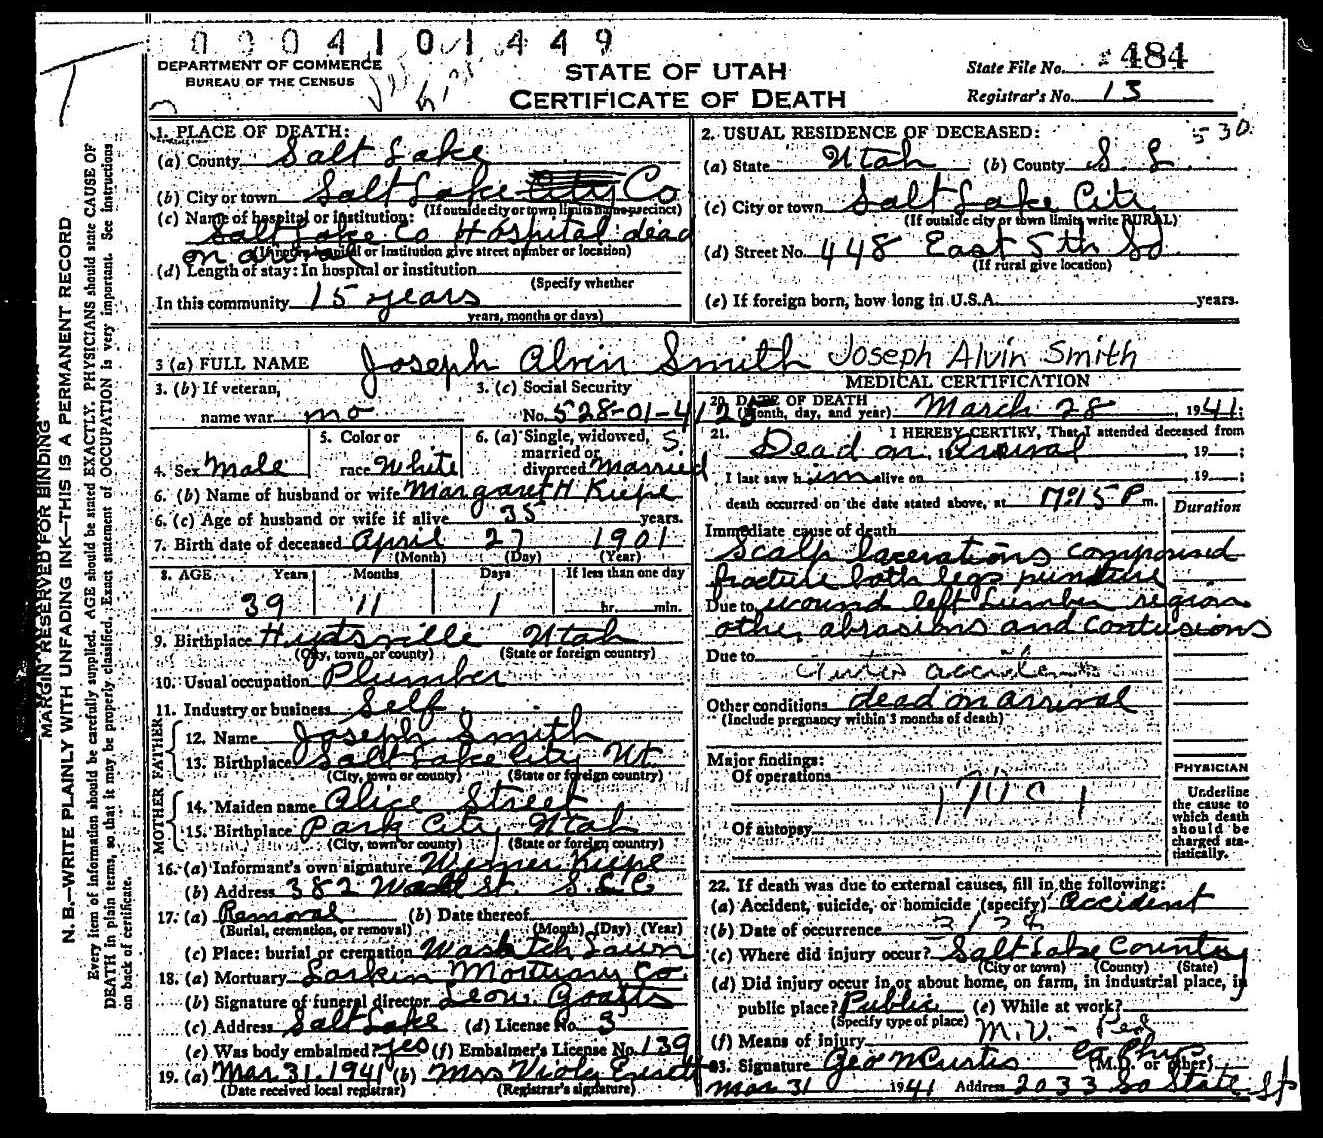 0 0 0 4 1 0 1 4 4 9
DEPARTMENT OF COMMERCE
BUREAU OF THE CENSUS
STATE OF UTAH
CERTIFICATE OF DEATH
State File No. 484
Registrar's No. 13
530
1. PLACE OF DEATH:
(a) County Salt Lake
(b) City or town Salt Lake City Co
(If outside city or town limits name precinct)
(c) Name of hospital or institution:
Salt Lake Co Hospital dead
on arrival
(If not in hospital or institution give street number or location)
(d) Length of stay: In hospital or institution
(Specify whether
In this community 15 years
years, months or days)
2. USUAL RESIDENCE OF DECEASED:
(a) State Utah (b) County S. L.
(c) City or town Salt Lake City
(If outside city or town limits, write RURAL)
(d) Street No. 448 East 5th So
(If rural give location)
(e) If foreign born, how long in U.S.A. years.
3 (a) FULL NAME Joseph Alvin Smith Joseph Alvin Smith
3. (b) If veteran, 3. (c) Social Security
name war no No. 528-01-4123
4. Sex Male 5. Color or race White 6. (a) Single, widowed, married or divorced Married
6. (b) Name of husband or wife Margaret H Kiepe
6. (c) Age of husband or wife if alive 35 years.
7. Birth date of deceased April 27 1901
(Month) (Day) (Year)
8. AGE Years Months Days If less than one day
39 11 1 hr. min.
9. Birthplace Hyrtsville Utah
(City, town or county) (State or foreign country)
10. Usual occupation Plumber
11. Industry or business Self
FATHER
12. Name Joseph Smith
13. Birthplace Salt Lake City Ut.
(City, town or county) (State or foreign country)
MOTHER
14. Maiden name Alice Street
15. Birthplace Park City Utah
(City, town or county) (State or foreign country)
16. (a) Informant's own signature Werner Kiepe
(b) Address 382 Wall St S.L.C
17. (a) Removal (b) Date thereof
(Burial, cremation, or removal) (Month) (Day) (Year)
(c) Place: burial or cremation Wasatch Lawn
18. (a) Mortuary Larkin Mortuary Co
(b) Signature of funeral director Leon Goatts
(c) Address Salt Lake (d) License No. 3
(e) Was body embalmed? yes (f) Embalmer's License No. 139
19. (a) Mar. 31, 1941 (b) Mrs Viola Everett
(Date received local registrar) (Registrar's signature)
MEDICAL CERTIFICATION
20. DATE OF DEATH
(Month, day, and year) March 28, 1941;
21. I HEREBY CERTIFY, That I attended deceased from
Dead on Arrival, 19 ;
I last saw him alive on , 19 ;
death occurred on the date stated above, at 7:15 P m.
Duration
Immediate cause of death
Scalp lacerations compound
fracture both legs puncture
Due to wound left Lumber region
other abrasions and contusions
Due to
Auto accident
Other conditions dead on arrival
(Include pregnancy within 3 months of death)
Major findings:
Of operations
170c 1
Of autopsy
PHYSICIAN
Underline
the cause to
which death
should be
charged sta-
tistically.
22. If death was due to external causes, fill in the following:
(a) Accident, suicide, or homicide (specify) Accident
(b) Date of occurrence 3/28
(c) Where did injury occur? Salt Lake County
(City or town) (County) (State)
(d) Did injury occur in or about home, on farm, in industrial place, in
public place? Public (e) While at work?
(Specify type of place)
(f) Means of injury M.V. - Ped
23. Signature Geo N Curtis Co Phys
(M.D. or other)
Mar 31 1941 Address 2033 So State St
MARGIN RESERVED FOR BINDING
N. B.—WRITE PLAINLY WITH UNFADING INK—THIS IS A PERMANENT RECORD
Every item of information should be carefully supplied. AGE should be stated EXACTLY. PHYSICIANS should state CAUSE OF
DEATH in plain terms, so that it may be properly classified. Exact statement of OCCUPATION is very important. See instructions
on back of certificate.